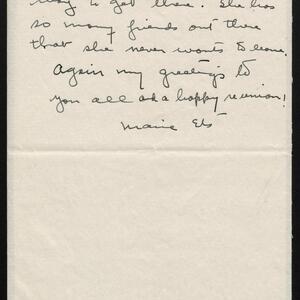 way to get there. She has
so many friends out there
that she never wants to leave.
Again my greetings to
you all and a happy reunion!
Marie Ets